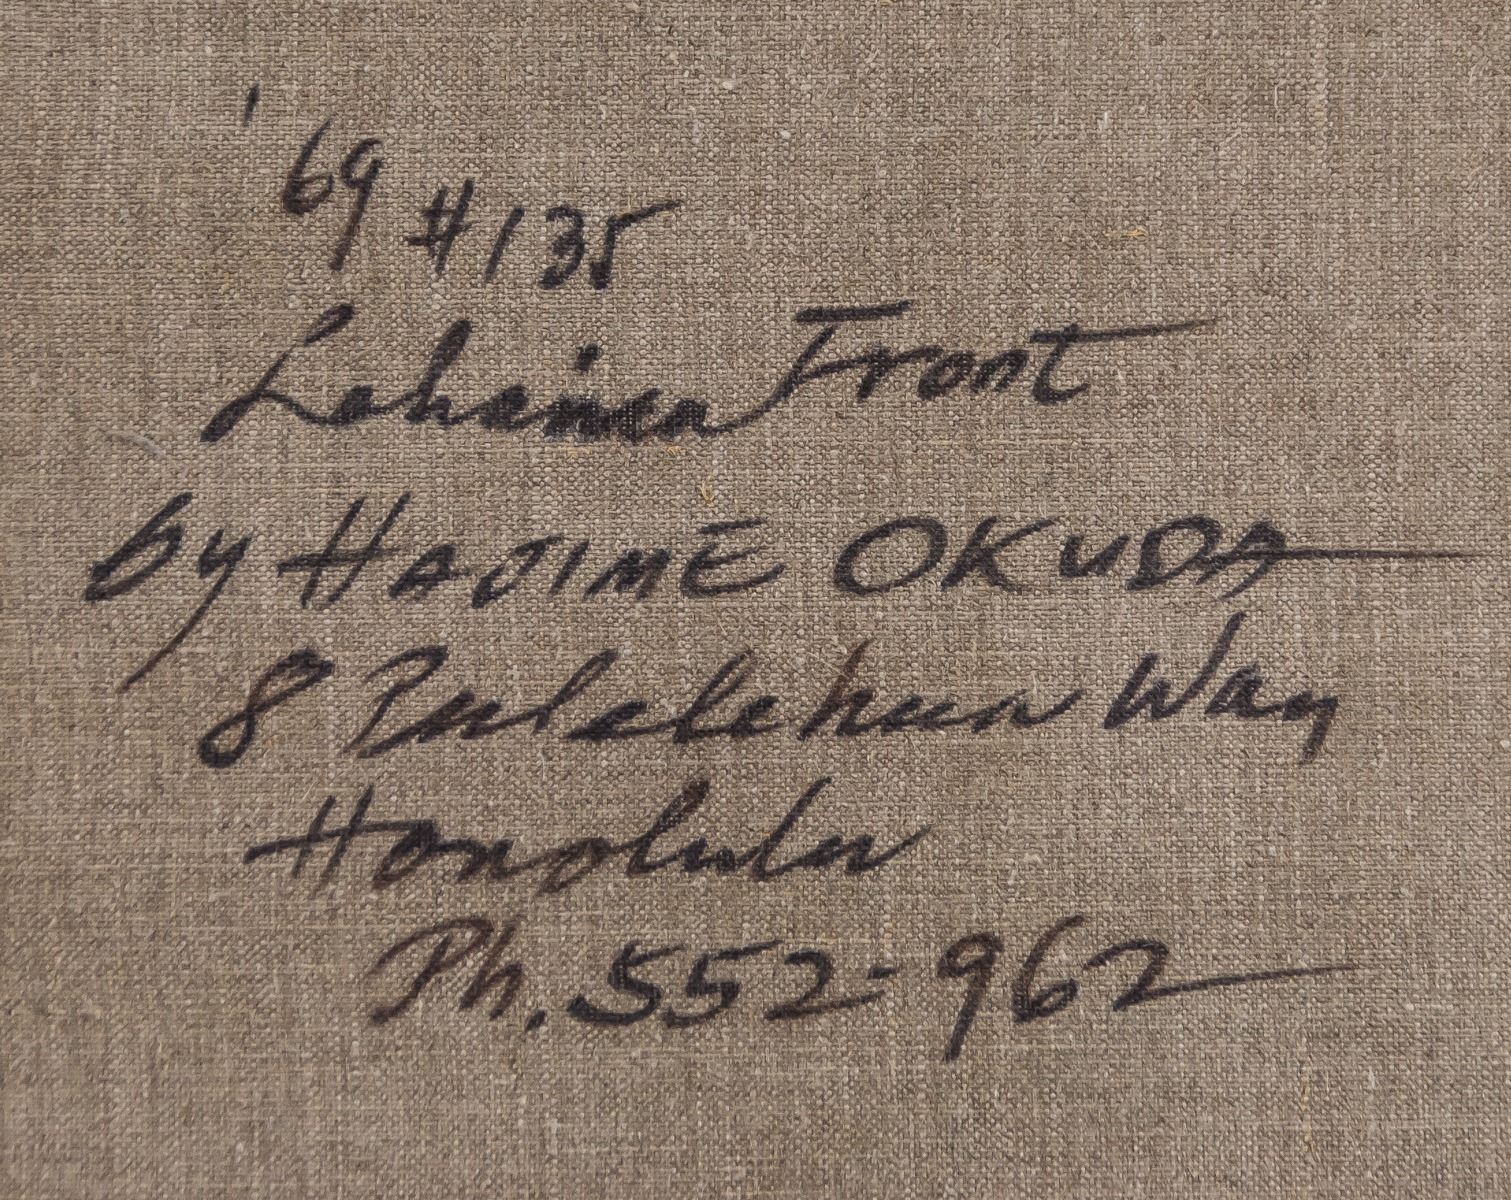 '69 #135
Lahaina Front
by HAJIME OKUDA
8 Way
Honolulu
Ph. 552-962